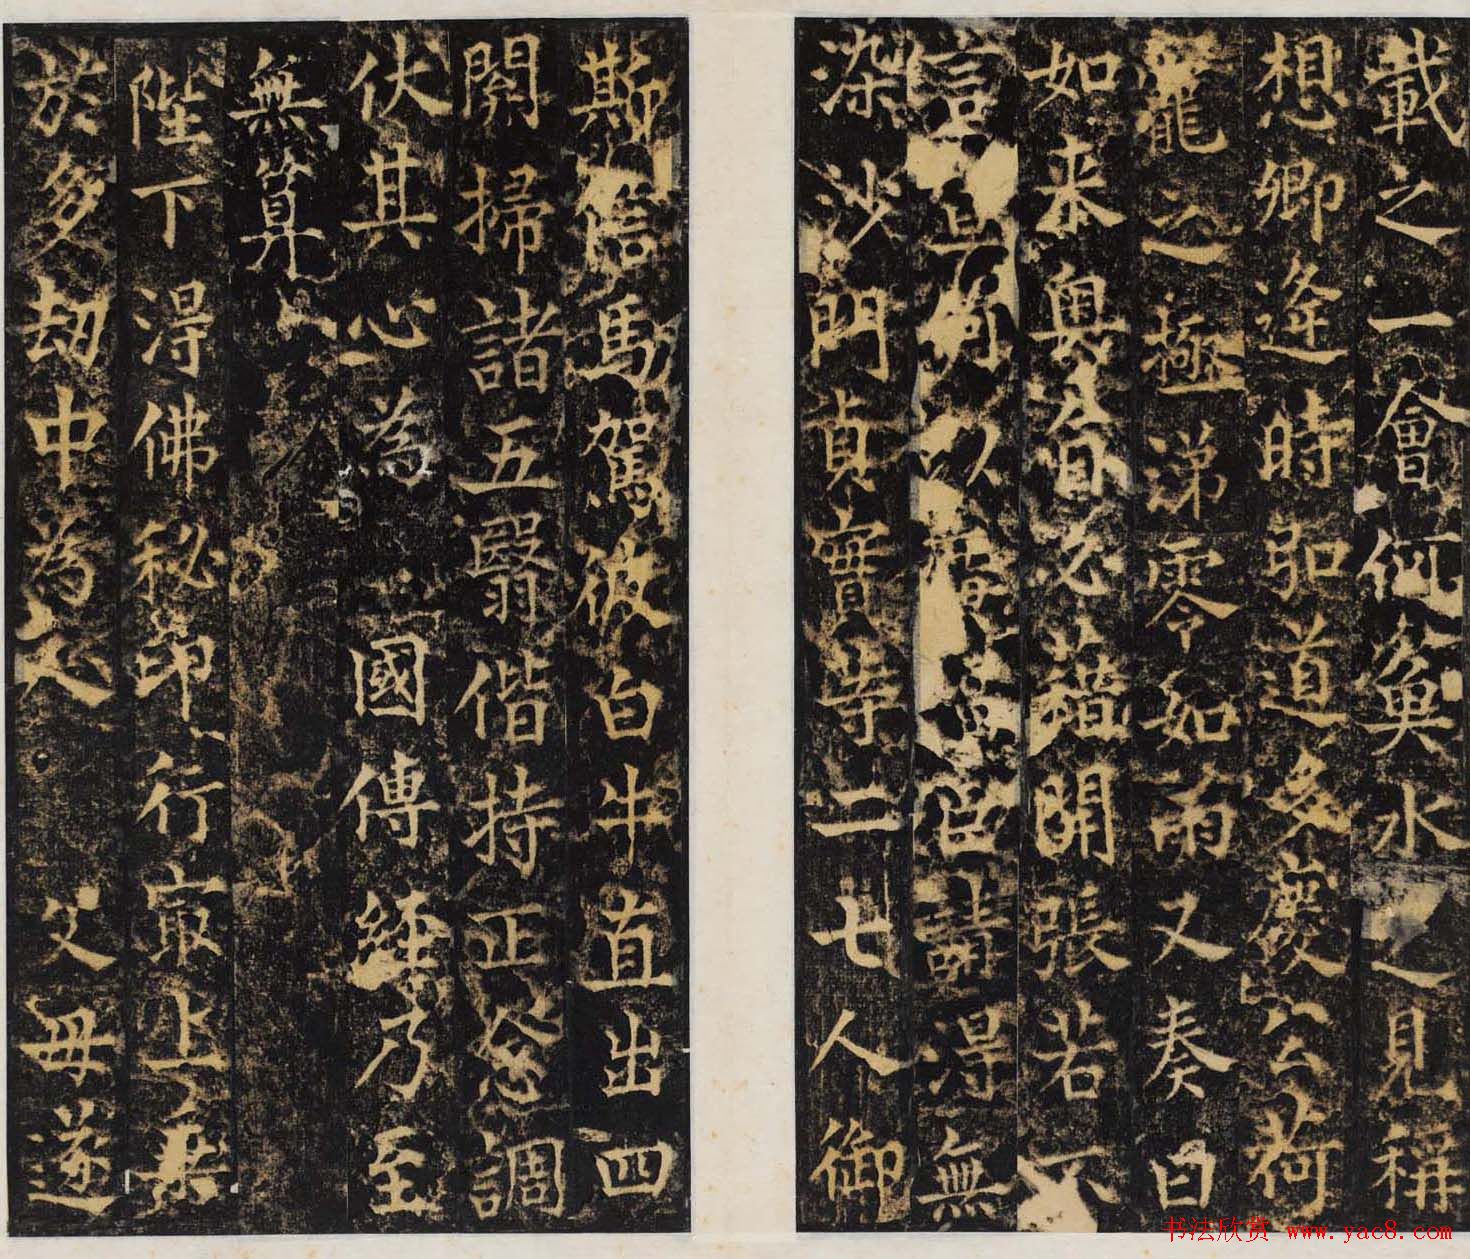 載之一會何奐水之見稱
想卿逢時聖道多慶公荷
寵之極涕零如雨又奏曰
如来奥旨必藉開張若不
言 何以 請淂無
染沙門貞實等一七人御
斯信馬駕彼白牛直出四
關掃諸五翳偕持正忍調
伏其心為國傳經乃至
無算
陛下淂佛秘印行最上乘
於多劫中為人父母遂
书法欣赏 www.yac8.com